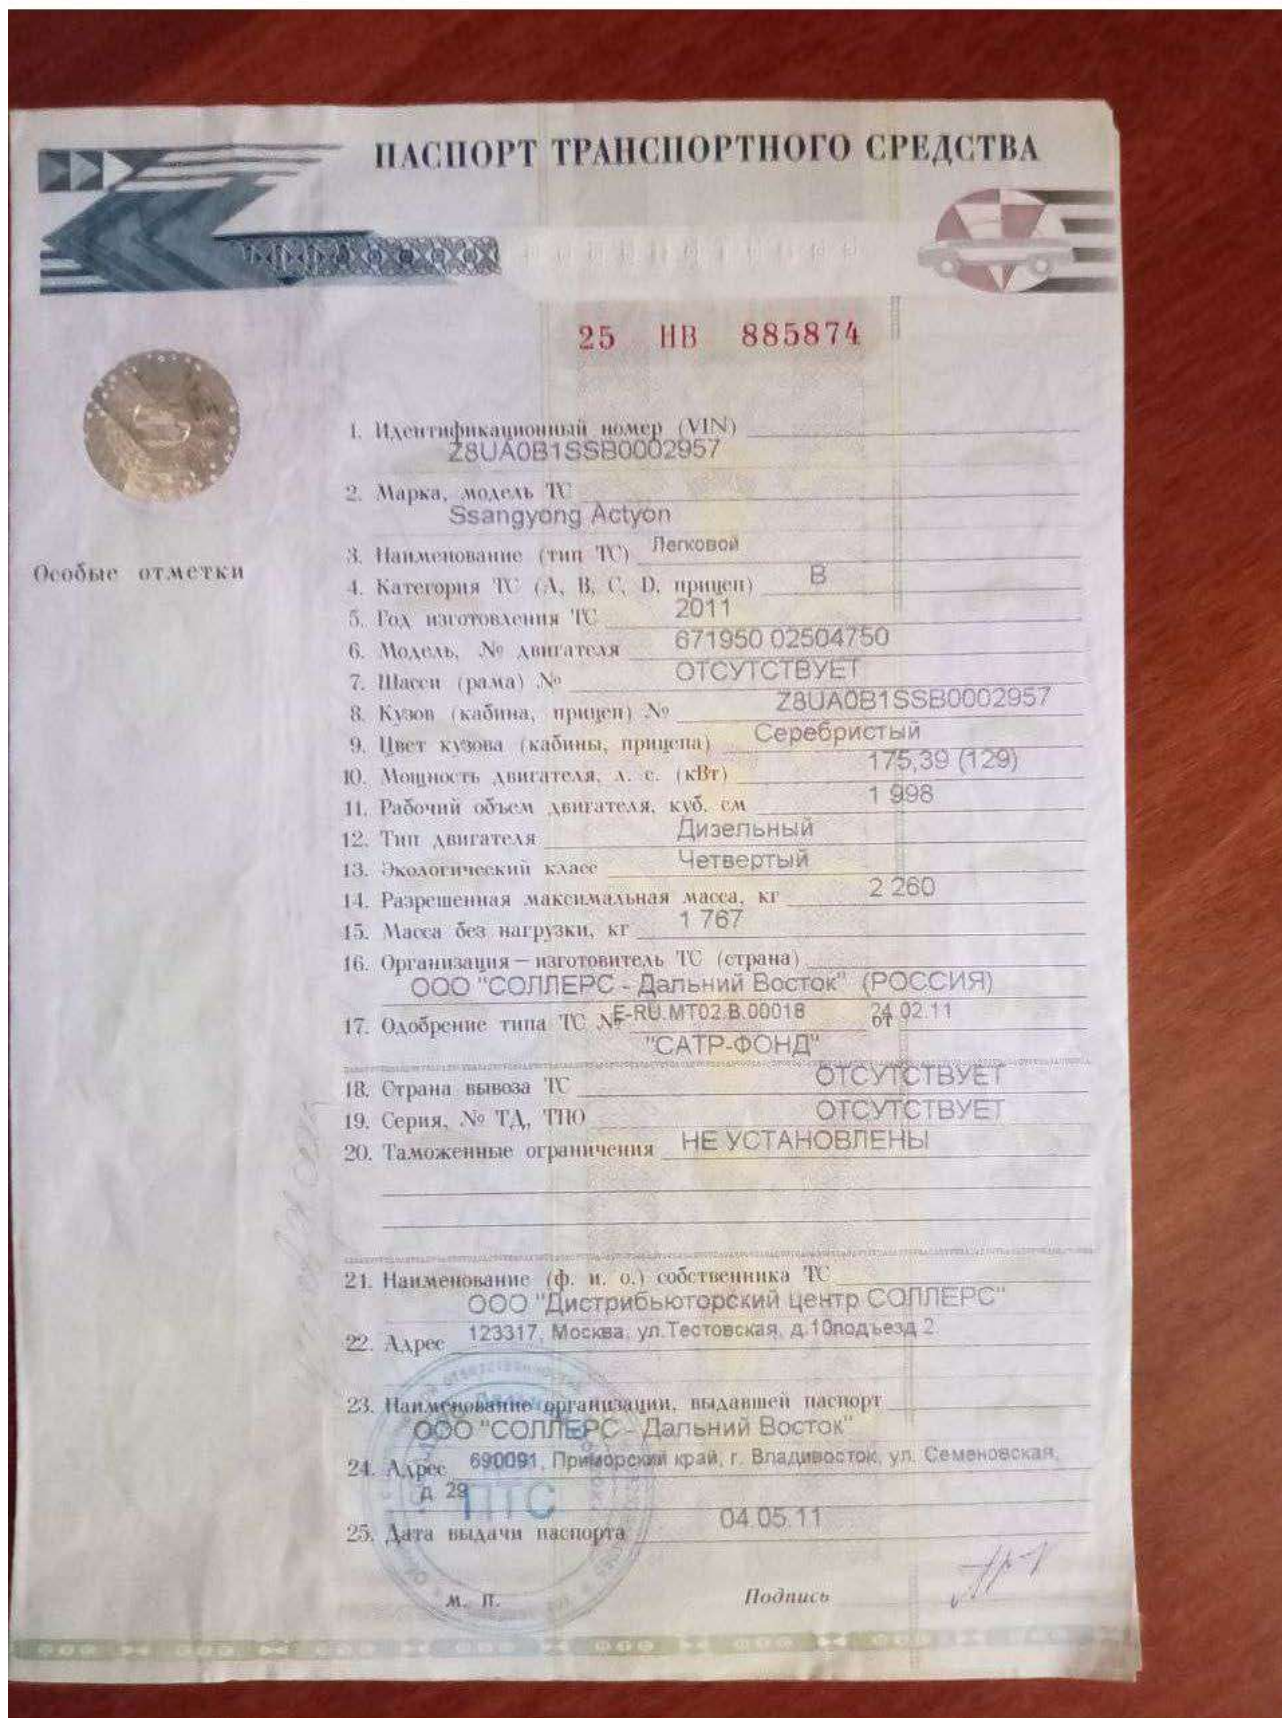 ПАСПОРТ ТРАНСПОРТНОГО СРЕДСТВА
25 НВ 885874
1. Идентификационный номер (VIN)
Z8UA0B1SSB0002957
2. Марка, модель ТС
Ssangyong Actyon
Особые отметки
3. Наименование (тип ТС) Легковой
4. Категория ТС (А, В, С, D, прицеп) В
5. Год изготовления ТС 2011
6. Модель, № двигателя 671950 02504750
7. Шасси (рама) № ОТСУТСТВУЕТ
8. Кузов (кабина, прицеп) № Z8UA0B1SSB0002957
9. Цвет кузова (кабины, прицепа) Серебристый
10. Мощность двигателя, л. с. (кВт) 175,39 (129)
11. Рабочий объем двигателя, куб. см 1 998
12. Тип двигателя Дизельный
13. Экологический класс Четвертый
14. Разрешенная максимальная масса, кг 2 260
15. Масса без нагрузки, кг 1 767
16. Организация – изготовитель ТС (страна)
ООО "СОЛЛЕРС - Дальний Восток" (РОССИЯ)
17. Одобрение типа ТС № E-RU.MT02.B.00018 от 24.02.11
"САТР-ФОНД"
18. Страна вывоза ТС ОТСУТСТВУЕТ
19. Серия, № ТД, ТПО ОТСУТСТВУЕТ
20. Таможенные ограничения НЕ УСТАНОВЛЕНЫ
21. Наименование (ф. и. о.) собственника ТС
ООО "Дистрибьюторский центр СОЛЛЕРС"
22. Адрес 123317, Москва, ул.Тестовская, д.10подъезд 2.
23. Наименование организации, выдавшей паспорт
ООО "СОЛЛЕРС - Дальний Восток"
24. Адрес 690091, Приморский край, г. Владивосток, ул. Семеновская,
д. 29
ПТС
25. Дата выдачи паспорта 04.05.11
М. П. Подпись